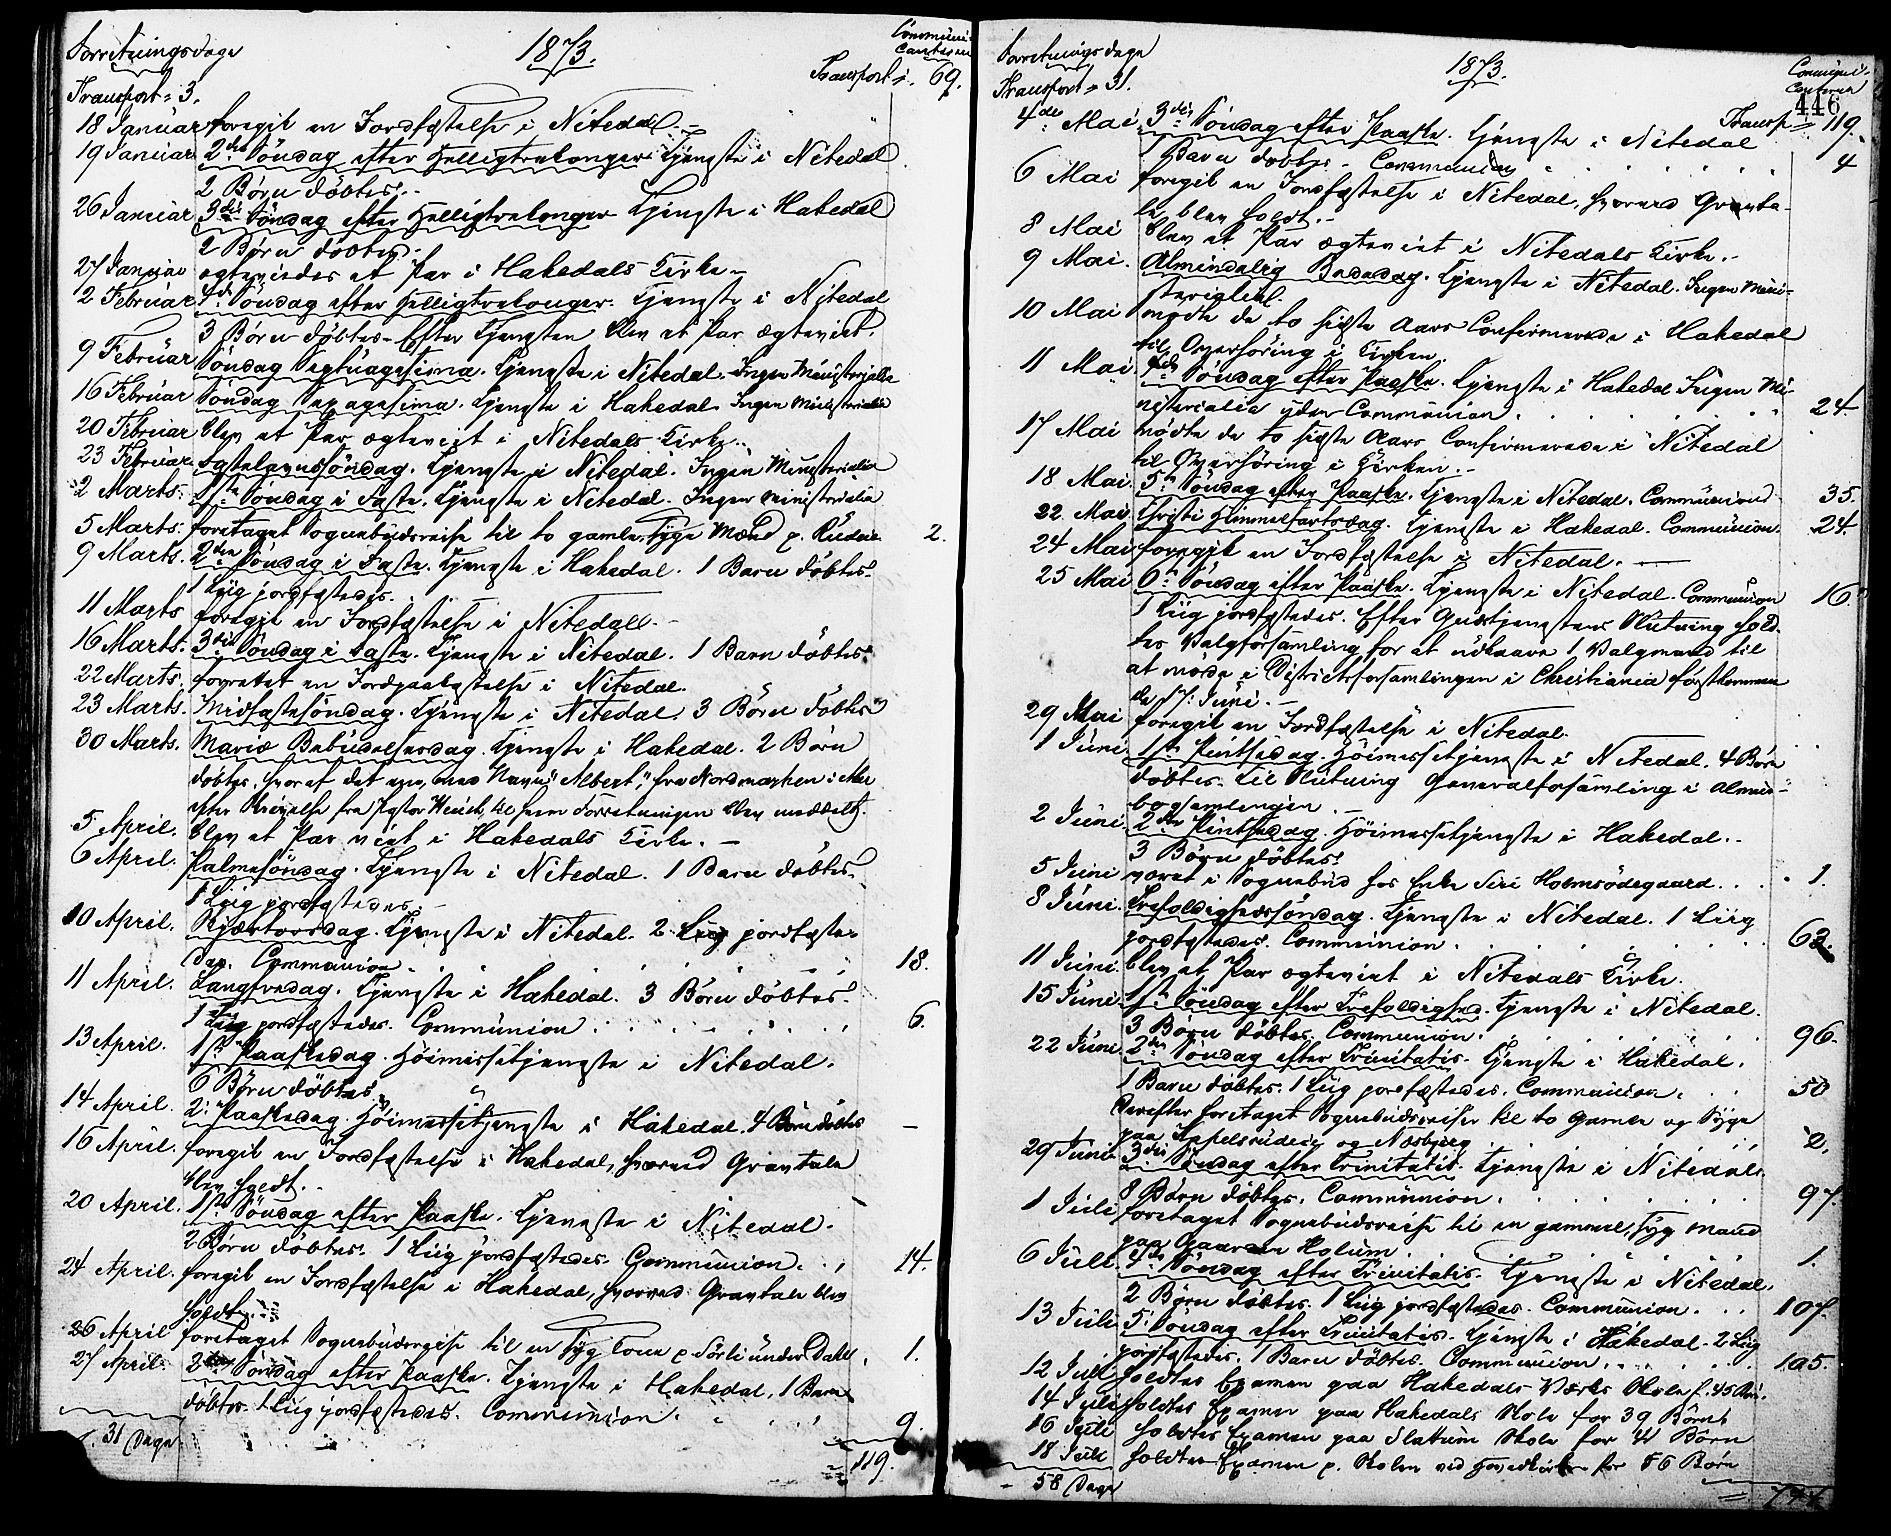 Forretningsdage
1873.
Communi-
canternes
Transport = 3.
Transport = 69.
18 Januar foregik en Jordfæstelse i Nitedal –
19 Januar 2den Söndag efter Helligtrekonger. Tjeneste i Nitedal
2 Børn döbtes. –
26 Januar 3die Söndag efter Helligtrekonger Tjeneste i Hakedal
2 Børn döbtes. –
27 Januar egteviedes et Par i Hakedals Kirke –
2 Februar 4de Söndag efter Helligtrekonger. Tjeneste i Nitedal
3 Børn döbtes – Efter Tjenesten blev et Par ægteviet.
9 Februar Söndag Septuagesima. Tjeneste i Nitedal. Ingen Ministerialia
16 Februar Söndag Sexagesima. Tjeneste i Hakedal. Ingen Ministerialia
20 Februar blev et Par ægteviet i Nitedals Kirke. –
23 Februar Fastelavnssöndag. Tjeneste i Nitedal. Ingen Ministerialia
2 Marts. 1ste Söndag i Faste. Tjeneste i Nitedal. Ingen Ministerialia
5 Marts. foretaget Sognebudsreise til to gamle, syge Mænd p. 2.
9 Marts. 2den Söndag i Faste. Tjeneste i Hakedal. 1 Barn döbtes.
1 Liig jordfæstedes.
11 Marts foregik en Jordfæstelse i Nitedal. –
16 Marts. 3die Söndag i Faste. Tjeneste i Nitedal. 1 Barn döbtes.
22 Marts. forrettet en Jordpaakastelse i Nitedal.
23 Marts. Midfastesöndag. Tjeneste i Nitedal. 3 Børn döbtes
30 Marts. Mariæ Bebudelsesdag. Tjeneste i Hakedal. 2 Børn
döbtes, hvoraf det ene, med Navn "Albert", fra Nordmarken i Aker
efter Skrivelse fra Pastor til hvem Forretningen blev meddelt.
5 April. blev et Par viet i Hakedals Kirke. –
6 April. Palmesöndag. Tjeneste i Nitedal. 1 Barn döbtes.
1 Liig jordfæstedes. –
10 April. Skjærtorsdag. Tjeneste i Nitedal. 2 Liig jordfæste-
des. Communion . . . . . . 18.
11 April. Langfredag. Tjeneste i Hakedal. 3 Børn döbtes.
1 Liig jordfæstedes. Communion . . . . . . 6.
13 April. 1ste Paaskedag. Höimessetjeneste i Nitedal.
6 Børn döbtes.
14 April. 2. Paaskedag. Höimessetjeneste i Hakedal. 4 Børn döbtes –
16 April. foregik en Jordfæstelse i Hakedal, hvorved Gravtale
blev holdt. –
20 April. 1ste Söndag efter Paaske. Tjeneste i Nitedal.
2 Børn döbtes. 1 Liig jordfæstedes. Communion. . . 14.
24 April. foregik en Jordfæstelse i Hakedal, hvorved Gravtale blev
holdt.
26 April foretaget Sognebudsreise til en syg Kone p. Sörli under Dahl. 1.
27 April. 2den Söndag efter Paaske. Tjeneste i Hakedal. 1 Barn
döbtes. 1 Liig jordfæstedes. Communion. . . . 9.
31 Dage
119.
Forretningsdage
1873.
Communi-
canternes
446
Transport = 31.
Transp = 119.
4de Mai 3die Söndag efter Paaske. Tjeneste i Nitedal
1 Barn döbtes. Communion . . . . . . 4
6 Mai foregik en Jordfæstelse i Nitedal, hvorved Gravta-
le blev holdt. –
8 Mai blev et Par ægteviet i Nitedals Kirke. –
9 Mai. Almindelig Bededag. Tjeneste i Nitedal. Ingen Mini-
sterialia.
10 Mai mödte de to sidste Aars Confirmerede i Hakedal
til Overhöring i Kirken.
11 Mai. 4de Söndag efter Paaske. Tjeneste i Hakedal Ingen Mi-
nisterialia uden Communion . . . . . . 24.
17 Mai mödte de to sidste Aars Confirmerede i Nitedal
til Overhöring i Kirken. –
18 Mai. 5te Söndag efter Paaske. Tjeneste i Nitedal. Communion 35.
22 Mai Christi Himmelfartsdag. Tjeneste i Hakedal. Communion. 24.
24 Mai foregik en Jordfæstelse i Nitedal. –
25 Mai 6te Söndag efter Paaske. Tjeneste i Nitedal. Communion 16
1 Liig jordfæstedes. Efter Gudstjenestens Slutning hold-
tes Valgforsamling for at udkaare 1 Valgmand til
at möde i Districtsforsamlingen i Christiania förstkommen
de Juni. –
29 Mai foregik en Jordfæstelse i Nitedal.
1 Juni. 1ste Pintsedag. Höimessetjeneste i Nitedal. 4 Børn
döbtes. Til Slutning Generalforsamling i Almue-
bogsamlingen. –
2 Juni. 2den Pintsedag. Höimessetjeneste i Hakedal. –
3 Børn döbtes.
5 Juni været i Sognebud hos Enke Siri Holmsödegaard. . . 1.
8 Juni. Trefoldighedssöndag. Tjeneste i Nitedal. 1 Liig
jordfæstedes. Communion . . . . . . 62.
11 Juni. blev et Par ægteviet i Nitedals Kirke.
15 Juni. 1ste Söndag efter Trefoldighed. Tjeneste i Nitedal.
3 Børn döbtes. Communion. . . . . . 96.
22 Juni 2den Söndag efter Trinitatis. Tjeneste i Hakedal.
1 Barn döbtes. 1 Liig jordfæstedes. Communion. . . 50
Derefter foretaget Sognebudsreiser til to Gamle og Syge
paa og . . . 2.
29 Juni 3die Söndag efter Trinitatis. Tjeneste i Nitedal.
8 Børn döbtes. Communion. . . . . . 97.
1 Juli foretaget Sognebudsreise til en gammel, syg Mand
paa Gaarden Holum. . . . 1.
6 Juli. 4de Söndag efter Trinitatis. Tjeneste i Nitedal.
2 Børn döbtes. 1 Liig jordfæstedes. Communion. . . 107.
13 Juli 5. Söndag efter Trinitatis. Tjeneste i Hakedal. 2 Liig
jordfæstedes. 1 Barn döbtes. Communion. . . . 105.
12 Juli holdtes Examen paa Hakedals Værks Skole f. 45 Børn.
14 Juli holdtes Examen paa Hakedals Skole for 39 Børn.
16 Juli holdtes Examen paa Slattum Skole for 41 Børn
18 Juli holdtes Examen p. Skolen ved Hovedkirken for 56 Børn
58 Dage